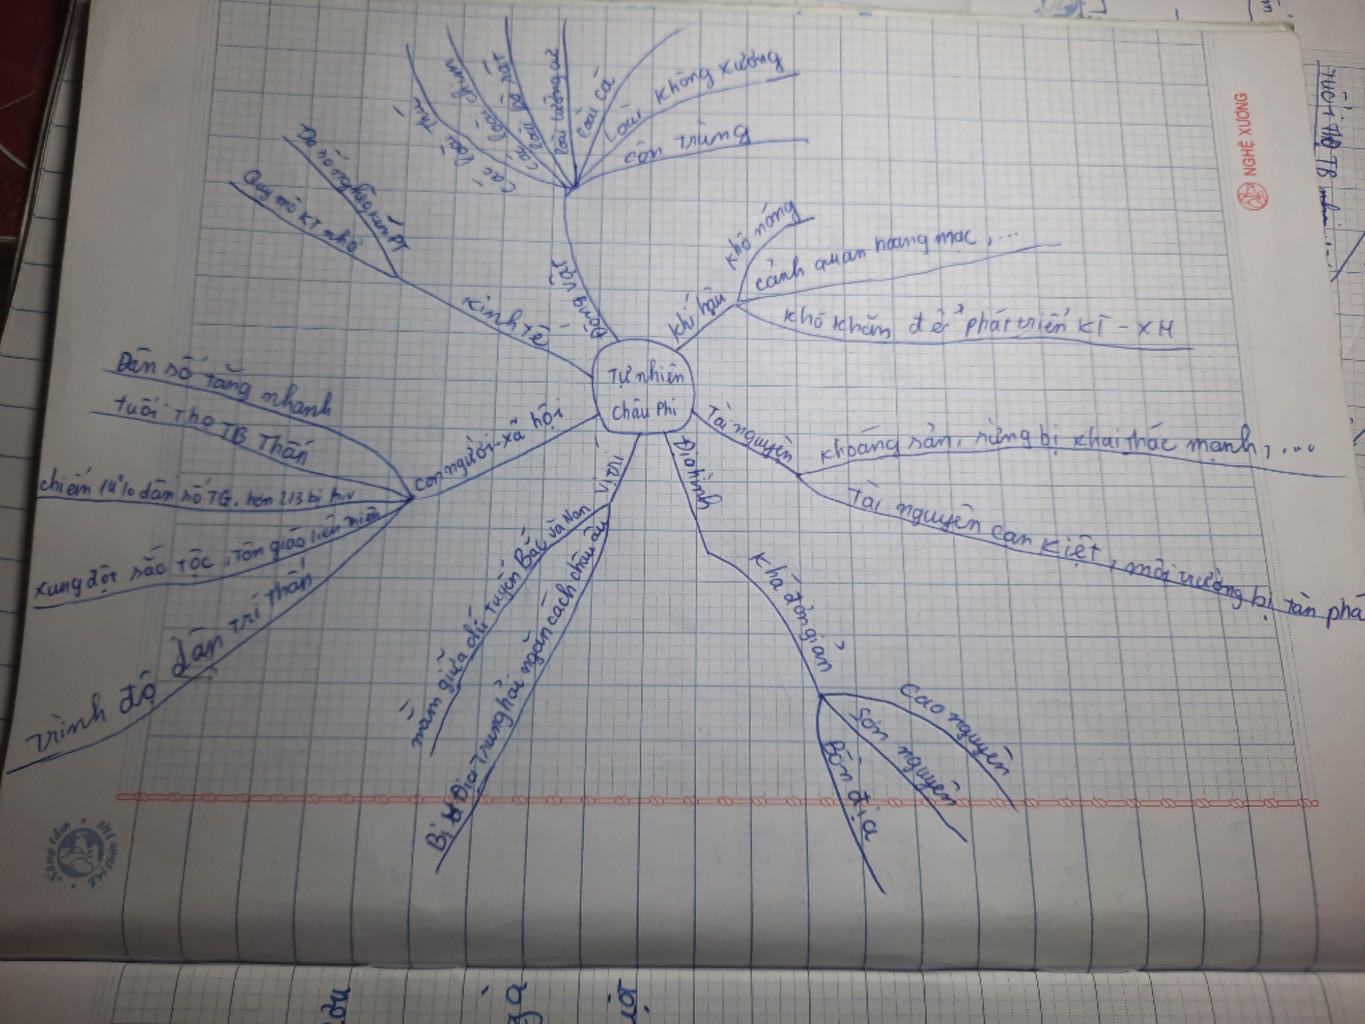 Tự nhiên
Châu Phi
Động vật
các loài thú
các loài chim
các loài bò sát
loài lưỡng cư
loài cá
loài không xương
côn trùng
khí hậu
khô nóng
cảnh quan hoang mạc, ...
khó khăn để phát triển KT - XH
Tài nguyên
khoáng sản, rừng bị khai thác mạnh, ...
Tài nguyên cạn kiệt, môi trường bị tàn phá
Địa hình
khá đơn giản
cao nguyên
Sơn nguyên
Bồn địa
Vị trí
nằm giữa
tuyến Bắc và Nam
Bị Địa Trung hải ngăn cách châu âu
con người - xã hội
Dân số tăng nhanh
tuổi thọ TB Thấp
chiếm 14% dân số TG, hơn 2/3 bị hiv
xung đột sắc tộc, tôn giáo liên miên
trình độ dân trí thấp
kinh tế
Đa số nghèo kém PT
Quy mô KT nhỏ
NGHỆ XƯƠNG